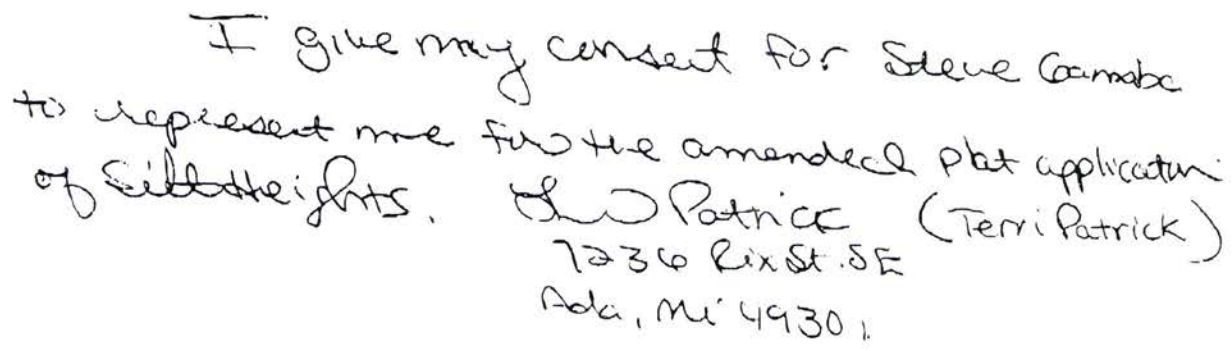 I give may consent for Steve
to represent me for the amended plat application
of Silt Heights. Patrick (Terri Patrick)
7236 Rix St. SE
Ada, Mi 49301